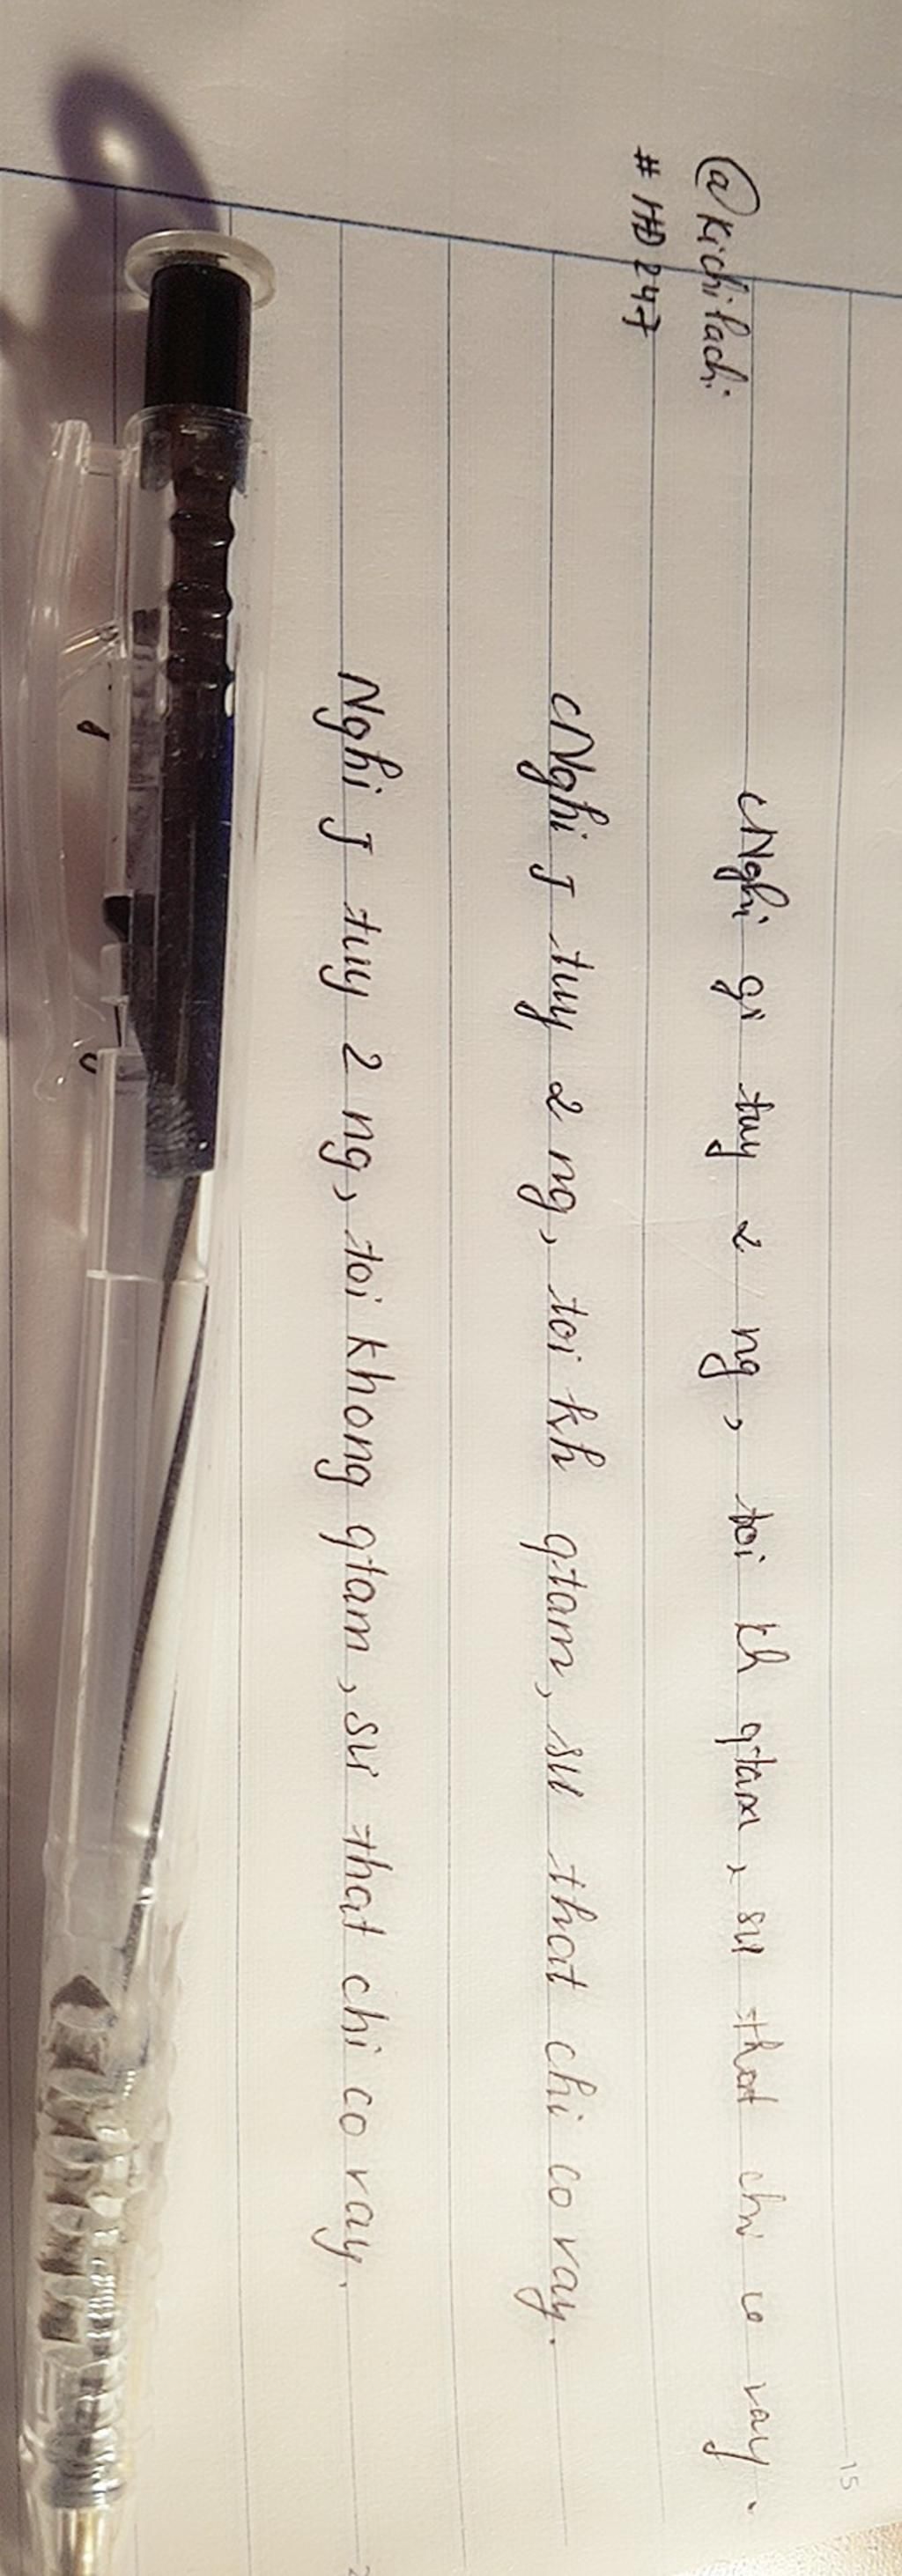 15
@Kichirachi
# HD247
Nghi gi tuy 2 ng, toi kh qtam, su that chi co vay.
Nghi J tuy 2 ng, toi kh qtam, su that chi co vay.
Nghi J tuy 2 ng, toi khong qtam, su that chi co vay.